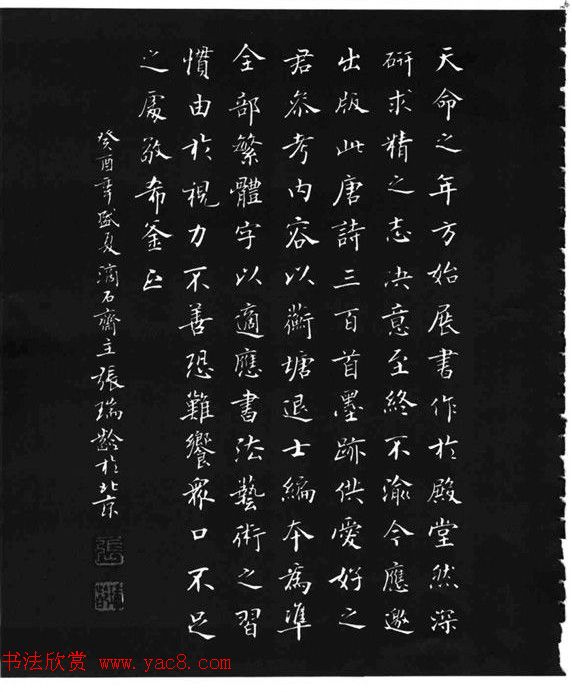 天命之年方始展書作於殿堂然深
研求精之志决意至終不渝今應邀
出版此唐詩三百首墨跡供愛好之
君参考内容以蘅塘退士編本為準
全部繁體字以適應書法藝術之習
慣由於視力不善恐難饗眾口不足
之處敬希釜正
癸酉年盛夏滴石齋主張瑞齡於北京
張
书法欣赏 www.yac8.com